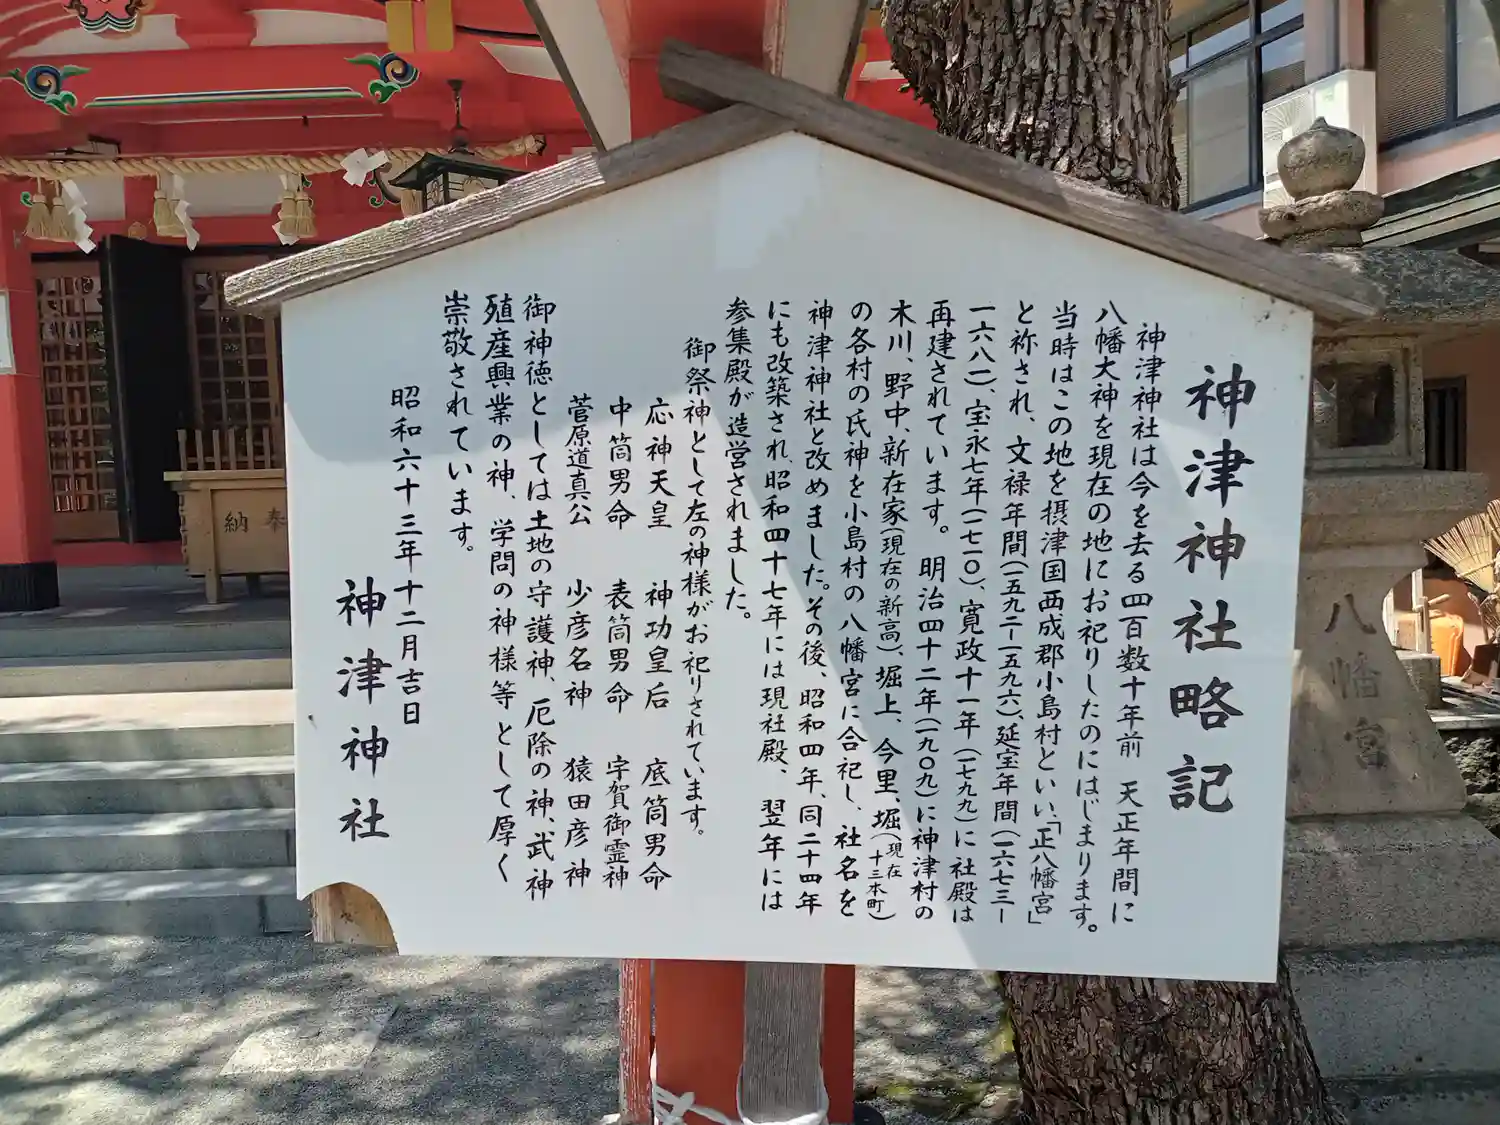 神津神社略記
神津神社は今を去る四百数十年前 天正年間に
八幡大神を現在の地にお祀りしたのにはじまります。
当時はこの地を摂津国西成郡小島村といい、「正八幡宮」
と祢され、文禄年間(一五九二-一五九六)、延宝年間(一六七三-
一六八一)、宝永七年(一七一〇)、寛政十一年(一七九九)に社殿は
再建されています。明治四十二年(一九〇九)に神津村の
木川、野中、新在家(現在の新高)、堀上、今里、堀(現在十三本町)
の各村の氏神を小島村の八幡宮に合祀し、社名を
神津神社と改めました。その後、昭和四年、同二十四年
にも改築され、昭和四十七年には現社殿、翌年には
参集殿が造営されました。
御祭神として左の神様がお祀りされています。
応神天皇 神功皇后 底筒男命
中筒男命 表筒男命 宇賀御霊神
菅原道真公 少彦名神 猿田彦神
御神徳としては土地の守護神、厄除の神、武神
殖産興業の神、学問の神様等として厚く
崇敬されています。
昭和六十三年十二月吉日
神津神社
奉納
八幡宮